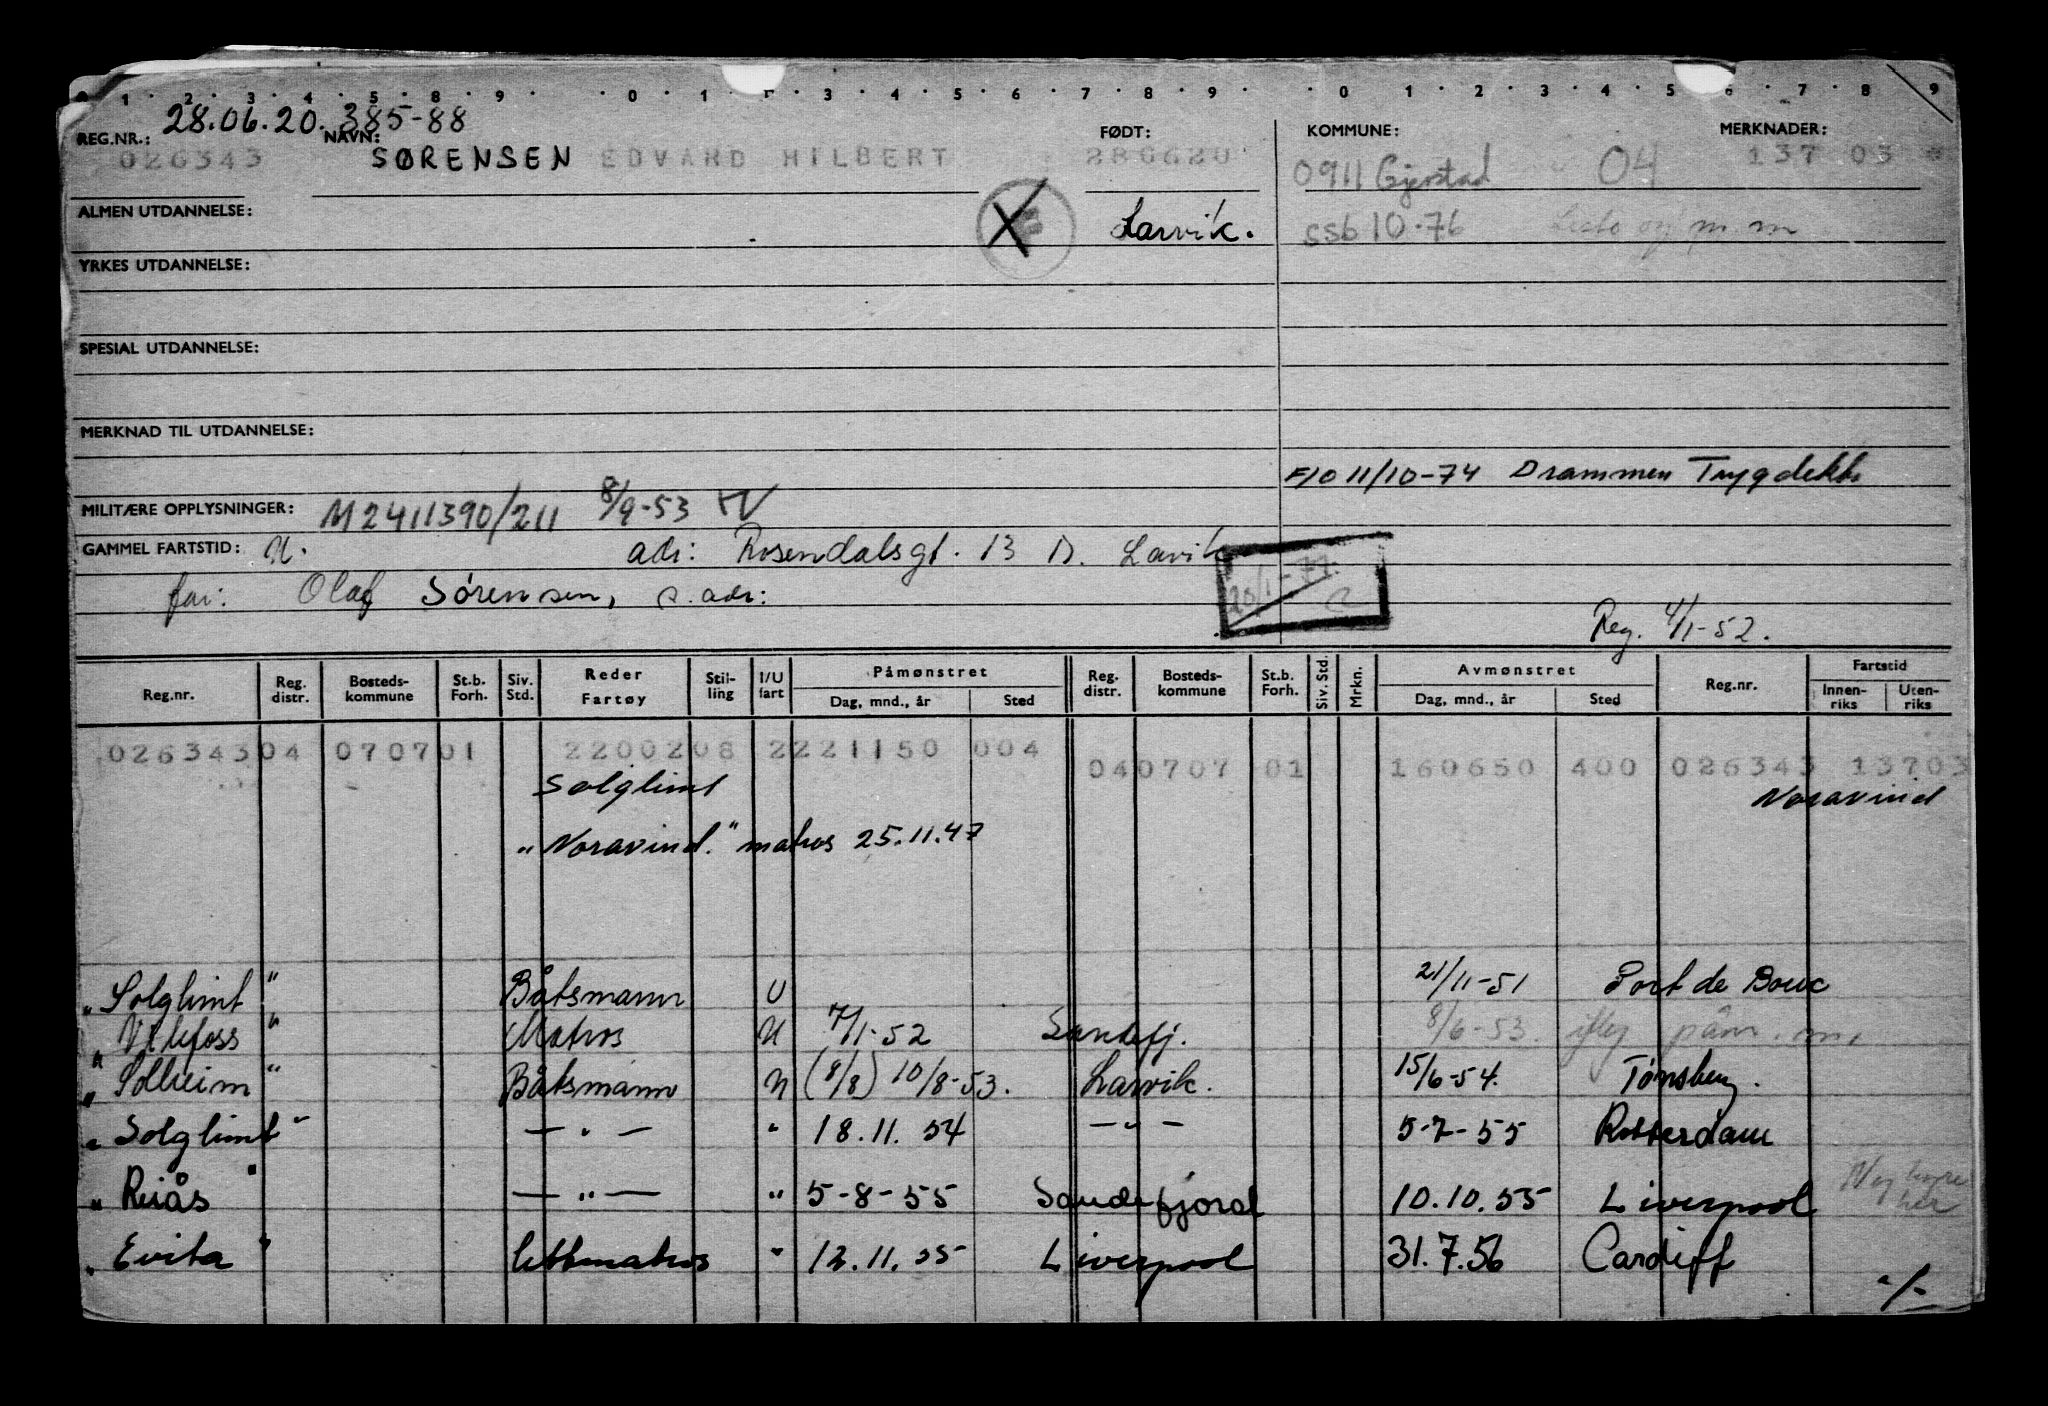 1 2 3 4 5 8 9 0 1 3 4 5 6 7 8 9 0 1 2 3 4 5 6 7 8 9
28.06.20. 385-88
REG.NR.: NAVN: FØDT: KOMMUNE: MERKNADER:
026343 SØRENSEN EDVARD HILBERT 280620 0911 Gjerstad 04 137 03
ALMEN UTDANNELSE: X Larvik. SSB 10-76
YRKES UTDANNELSE:
SPESIAL UTDANNELSE:
MERKNAD TIL UTDANNELSE:
F/O 11/10-74 Drammen Trygdekt.
MILITÆRE OPPLYSNINGER: M2411390/211 8/9-53
GAMMEL FARTSTID: U. adr: Rosendalsgt. 13 Larvik
far: Olaf Sørensen, s. adr:
Reg. 4/1-52.
Reg.nr. Reg. distr. Bosteds- kommune St.b. Forh. Siv. Std. Reder Fartøy Stil- ling I/U fart Påmønstret Dag, mnd., år Sted Reg. distr. Bosteds- kommune St.b. Forh. Siv. Std. Mrkn. Avmønstret Dag, mnd., år Sted Reg.nr. Fartstid Innen- riks Uten- riks
02634304 070701 2200208 2221150 004 040707 01 160650 400 026343 13703
Solglimt Noravind
"Noravind." matros 25.11.47
"Solglimt" Båtsmann U 21/11-51 Port de Bouc
"Vilefoss" Matros U 7/1-52 Sandefj. 8/6-53. iflg påm. m.
"Solheim" Båtsmann U (8/8) 10/8-53. Larvik. 15/6-54. Tønsberg.
"Solglimt" — " — " 18.11.54 — " — 5-7-55 Rotterdam
"Reiås" — " — " 5-8-55 Sandefjord 10.10.55 Liverpool
"Evita" lettmatros " 12.11.55 Liverpool 31.7.56 Cardiff